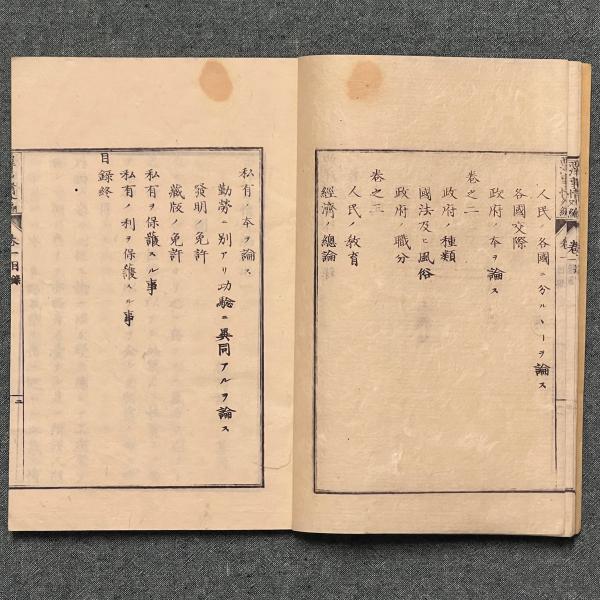 人民ノ各國ニ分ルヽヿヲ論ス
各國交際
卷之二
政府ノ本ヲ論ス
政府ノ種類
國法及ヒ風俗
政府ノ職分
卷之三
人民ノ教育
經濟ノ總論
私有ノ本ヲ論ス
勤勞ニ別アリ功驗ニ異同アルヲ論ス
發明ノ免許
藏版ノ免許
私有ヲ保護スル事
私有ノ利ヲ保護スル事
目録終
卷一目録
二